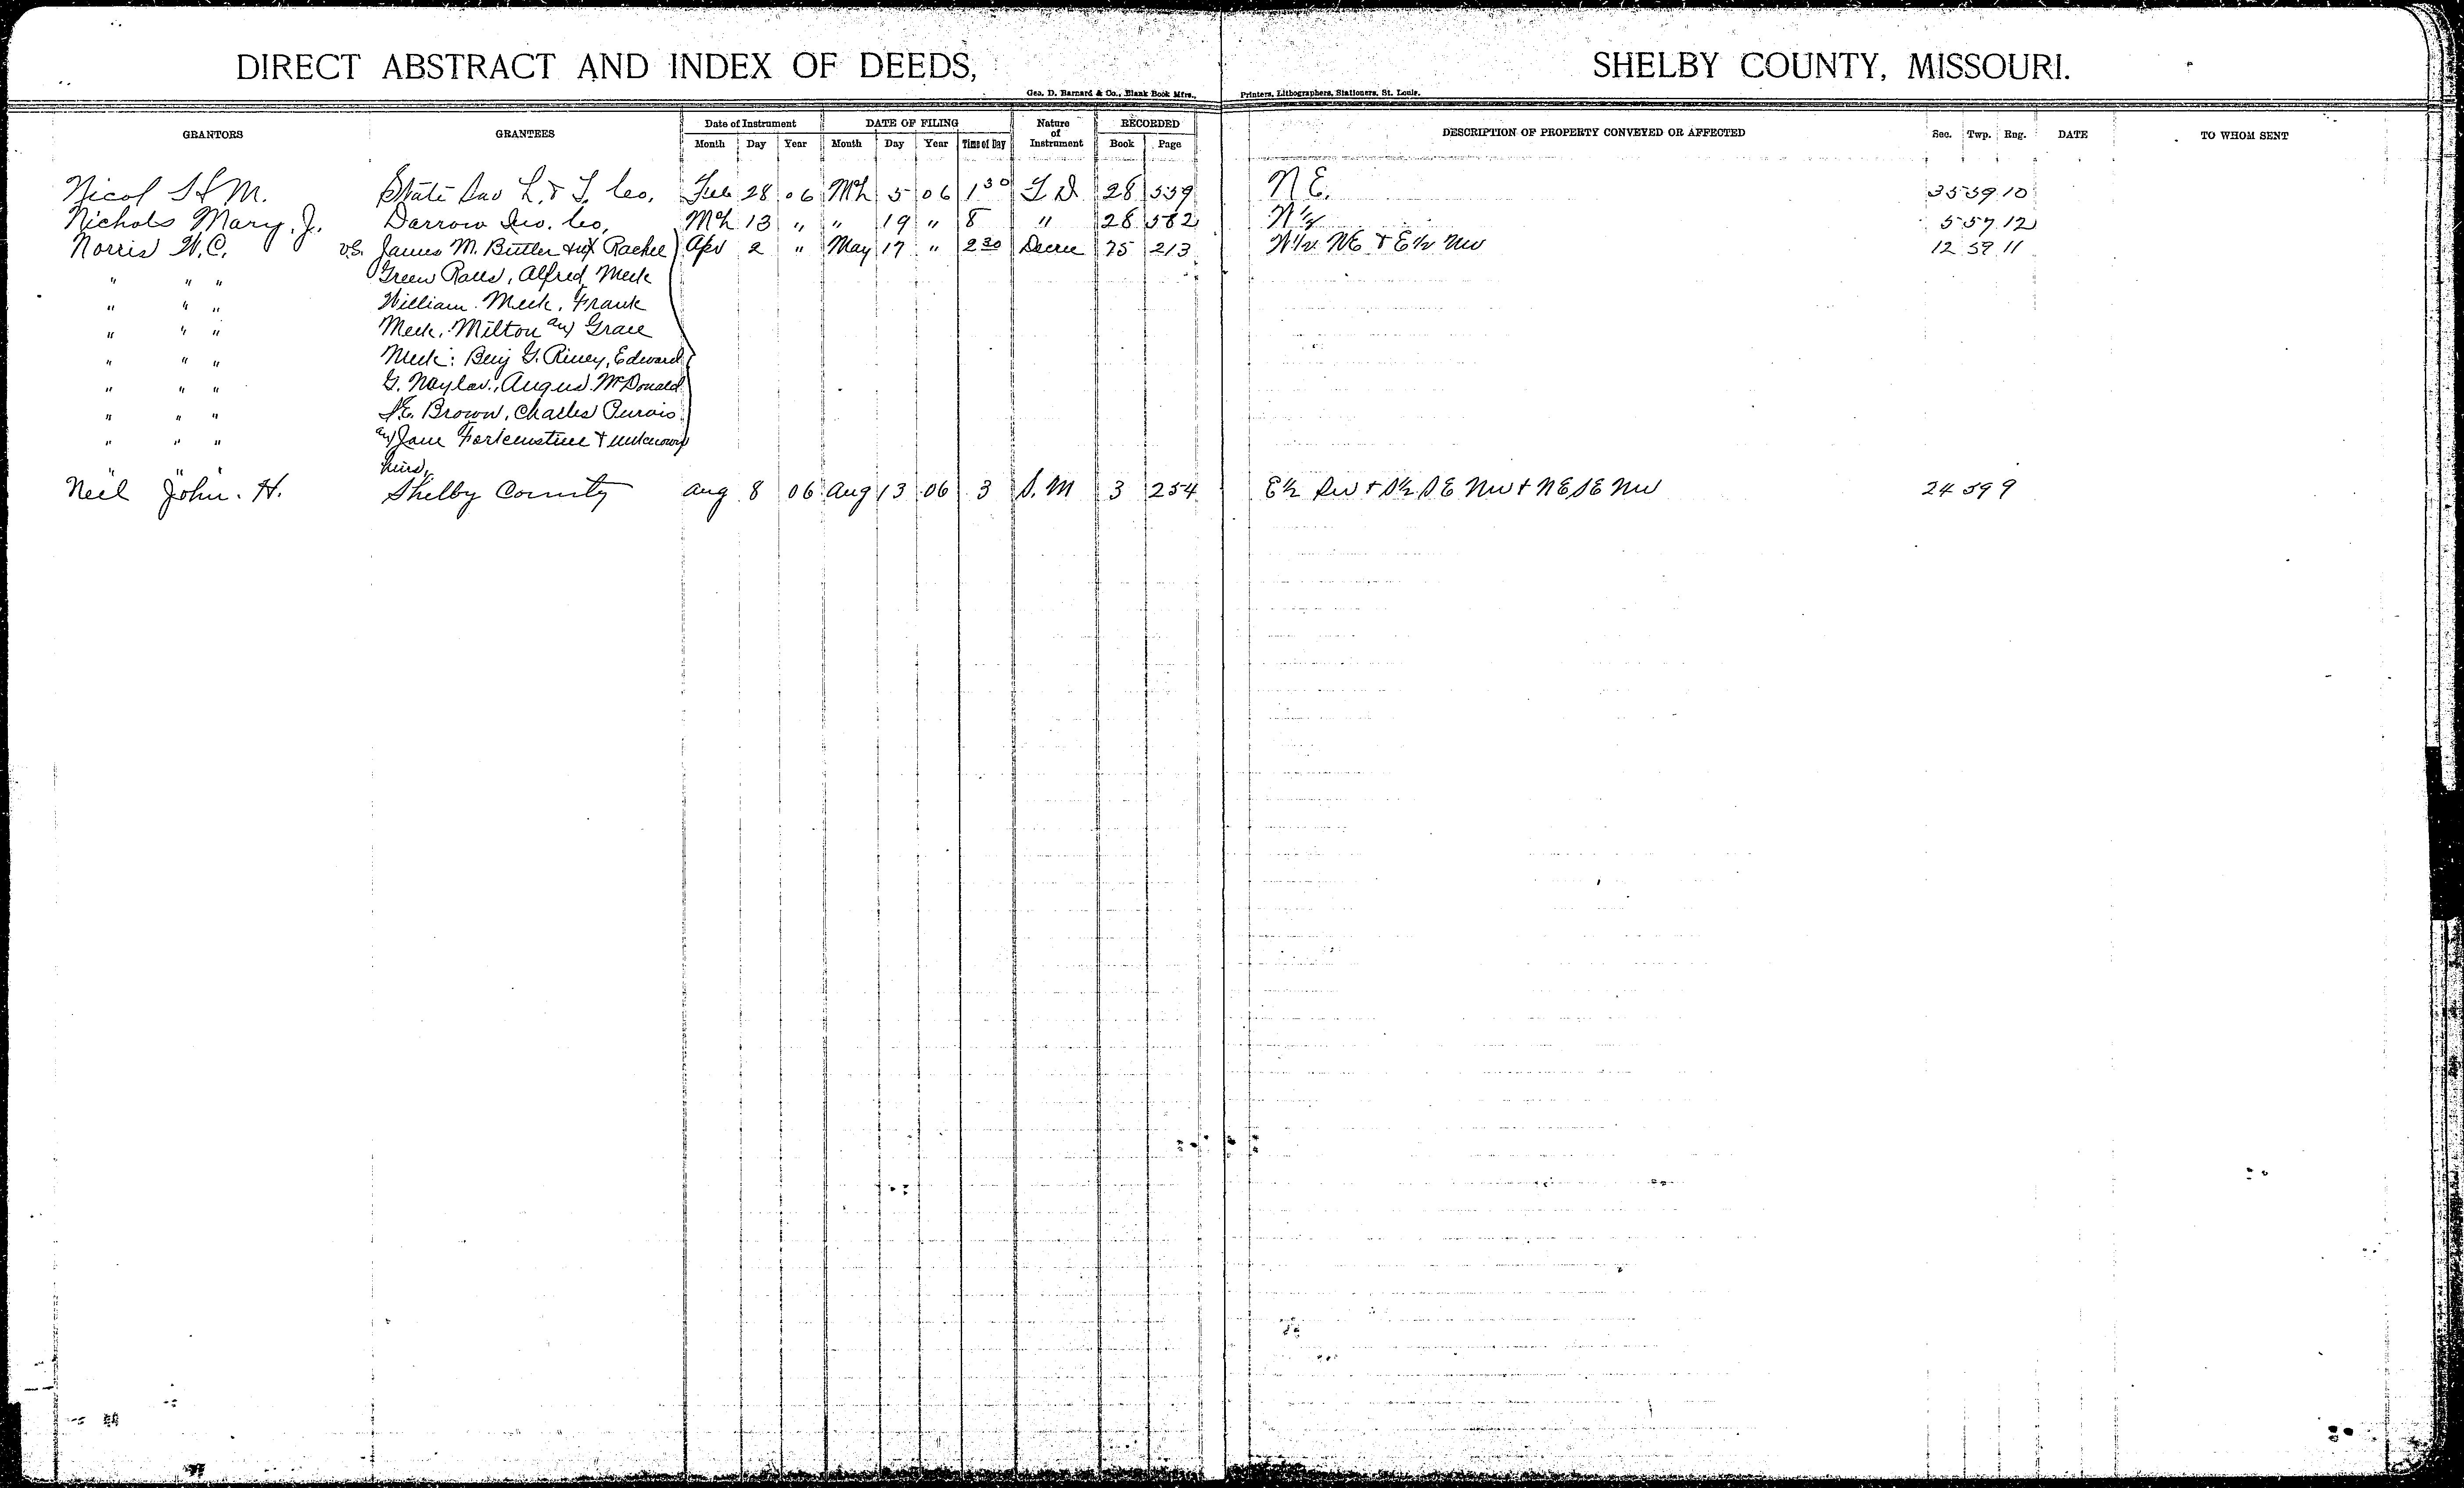 DIRECT ABSTRACT AND INDEX OF DEEDS, SHELBY COUNTY, MISSOURI.
Geo. D. Barnard & Co., Blank Book Mfrs., Printers, Lithographers, Stationers, St. Louis.
GRANTORS GRANTEES Date of Instrument DATE OF FILING Nature of Instrument RECORDED DESCRIPTION OF PROPERTY CONVEYED OR AFFECTED Sec. Twp. Rng. DATE TO WHOM SENT
Month Day Year Month Day Year Time of Day Book Page
Nicol M. State Sav L. & T. Co. Feb 28 06 Mch 5 06 1 30 T D 28 559 N E. 35 59 10
Nichols Mary J. Darrow Inv. Co, Mch 13 " " 19 " 8 " 28 582 N 1/2 5 57 12
Norris W.C. vs. James M. Butler & ux Rachel Apr 2 " May 17 " 2 30 Decree 75 213 W 1/2 NE & E 1/2 NW 12 59 11
" " " Green Alfred Meek
" " " William Meek, Frank
" " " Meek, Milton and Grace
" " " Meek, Benj G. Riney, Edward
" " " G. Naylor, Angus McDonald
" " " Brown, Charles Purvis
" " " and Jane & unknown
" " " heirs,
Neil John. H. Shelby County Aug 8 06 Aug 13 06 3 S. M 3 254 E 1/2 SW & S 1/2 S E NW & N E S E NW 24 59 9